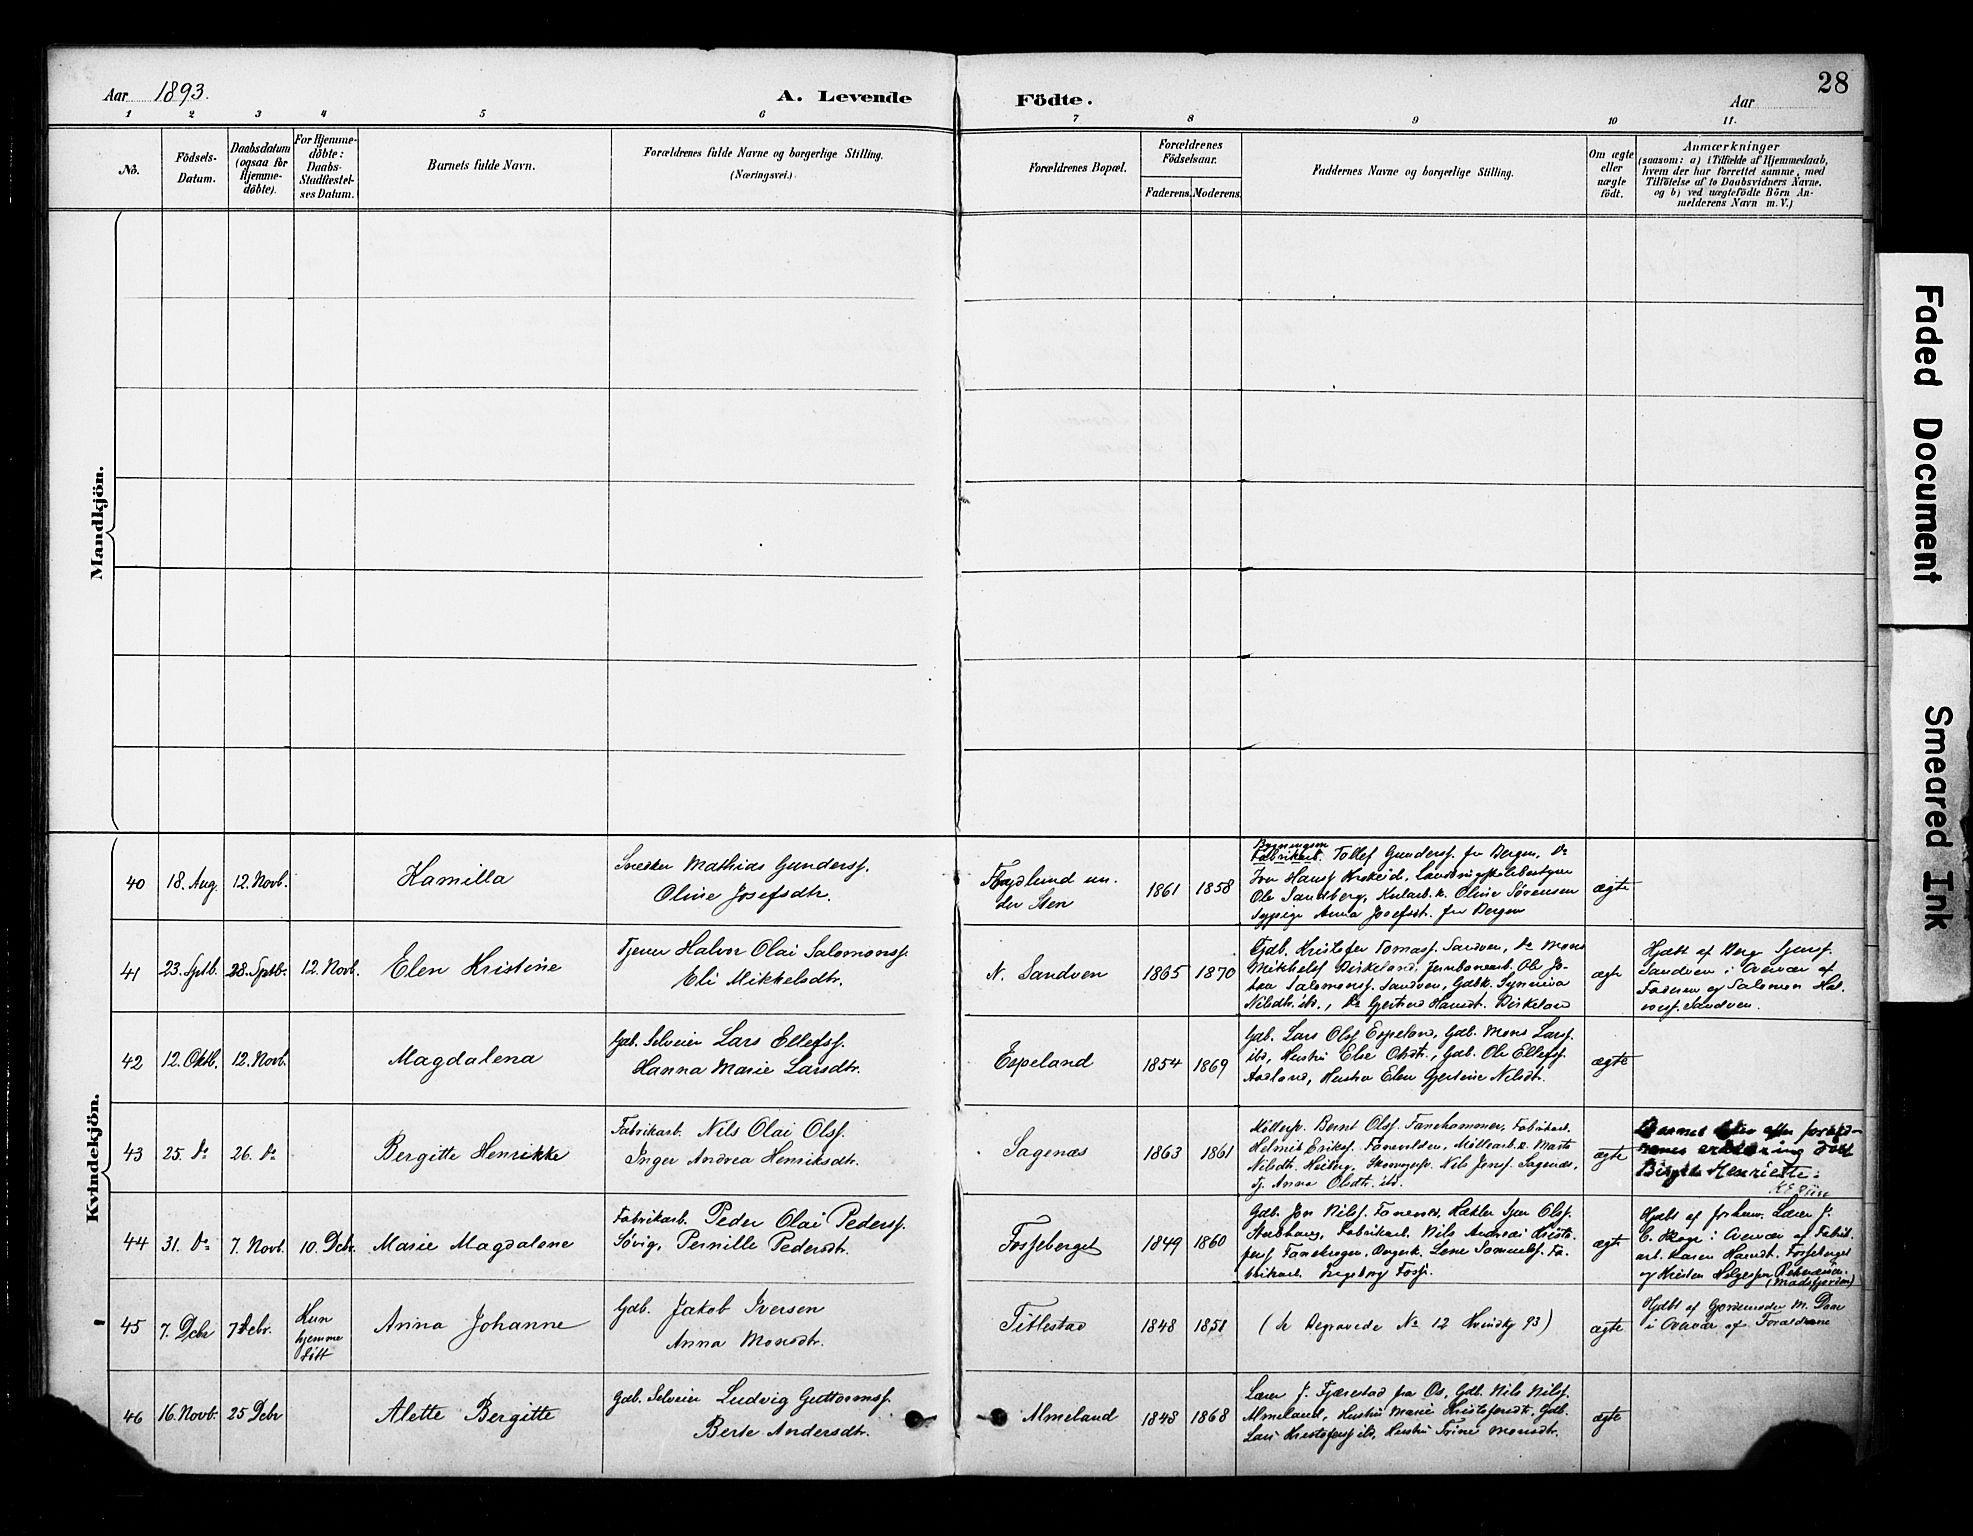 Aar 1893.
A. Levende Födte.
Aar
28
1 2 3 4 5 6 7 8 9 10 11.
No.
Födsels-Datum.
Daabsdatum (ogsaa för Hjemmedöbte).
For Hjemmedöbte: Daabs-Stadfæstelses Datum.
Barnets fulde Navn.
Forældrenes fulde Navne og borgerlige Stilling.
(Næringsvei.)
Forældrenes Bopæl.
Forældrenes Födselsaar.
Faderens. Moderens.
Faddernes Navne og borgerlige Stilling.
Om ægte eller uægte födt.
Anmærkninger
(saasom: a) i Tilfælde af Hjemmedaab,
hvem der har forrettet samme, med
Tilföielse af to Daabsvidners Navne.
og b) ved uægtefödte Börn An-
melderens Navn m.V.)
Mandkjön.
Kvindekjön.
40 18. Aug. 12. Novb. Kamilla
Snedker Mathias Gundersf.
Oline Josefsdtr.
under Sten
1861 1858
Fabrikarb. Tollef Gundersf. fra Bergen, Do
Ole Sandberg, Oline Sörensen
Sypige Anna Josefsdt. fra Bergen
ægte
41 23. Sptb. 28. Sptb. 12. Novb. Elen Kristine
Tjener Halvor Olai Salomonsf.
Eli Mikkelsdtr.
N. Sandven
1865 1870
Gdb. Kristofer Tomasf. Sandven, Do Mons
Mikkelsf Birkeland, Jernbanearb. Ole Jo-
han Salomonsf. Sandven, Gdbk. Synneva
Nilsdtr. ibd., Do Gjertrud Hansdt. Birkeland
ægte
Hjdbt af Berg
Sandven i Overvær af
Faderen og Salomon Hal-
vorsf. Sandven.
42 12. Oktb. 12. Novb. Magdalena
Gdb. Selveier Lars Ellefsf.
Hanna Marie Larsdtr.
Espeland
1854 1869
Gdb. Lars Olsf Espeland, Gdb. Mons Larsf.
ibd, Hustru Else Olsdt., Gdb. Ole Ellefsf.
Aadland, Hustru Elen Gjertine Nilsdtr.
ægte
43 25. Do 26. Do Bergitte Henrikke
Fabrikarb. Nils Olai Olsf.
Inger Andrea Henriksdtr.
Sagenæs
1863 1861
Bernt Olsf. Fanehammer, Fabrikarb.
Helmik Eriksf. Möllearb. k. Marta
Nilsdtr. Nils Jensf. Sagenæs,
Anna Olsdtr. ibd.
ægte
Barnet blev efter foræld-
renes erklæring döbt
Birgitte Henriette.
44 31. Do 7. Novb. 10. Debr. Marie Magdalene
Fabrikarb. Peder Olai Pedersf.
Sövig, Pernille Pedersdtr.
Fosseberget
1849 1860
Gdb. Jon Nilsf. Sjur Olsf.
Fabrikarb. Nils Andreas Kristo-
fersf Lene Samuelsf. Fa-
brikarb. Ingeborg Fosse.
ægte
Hjdbt af forhenv. Lærer J.
C. Skage i Overvær af Fabrik-
arb. Karen Hansdt. Fosseberget
og Kristen Helgesen
(Madsfjorden)
45 7. Debr 7 Debr. Kun hjemme döbt Anna Johanne
Gdb. Jakob Iversen
Anna Monsdtr.
Titlestad
1848 1851
(se Begravede No 12 Kvindkj 93)
ægte
Hjdbt af Gjordemoder M. Dane
i Overvær af Forældrene
46 16. Novb. 25 Debr Alette Bergitte
Gdb. Selveier Ludvig Guttormsf.
Berte Andersdtr.
Almeland
1848 1868
Lærer J. Tjærestad fra Os, Gdb. Nils Nilsf.
Almeland, Hustru Marie Kristofersdt., Gdb.
Lars Kristofersf ibd, Hustru Trine Monsdtr.
ægte
Faded Document
Smeared Ink